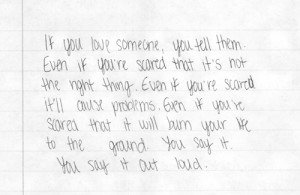 If you love someone, you tell them.
Even if you're scared that it's not
the right thing. Even if you're scared
it'll cause problems. Even if you're
scared that it will burn your life
to the ground. You say it.
You say it out loud.